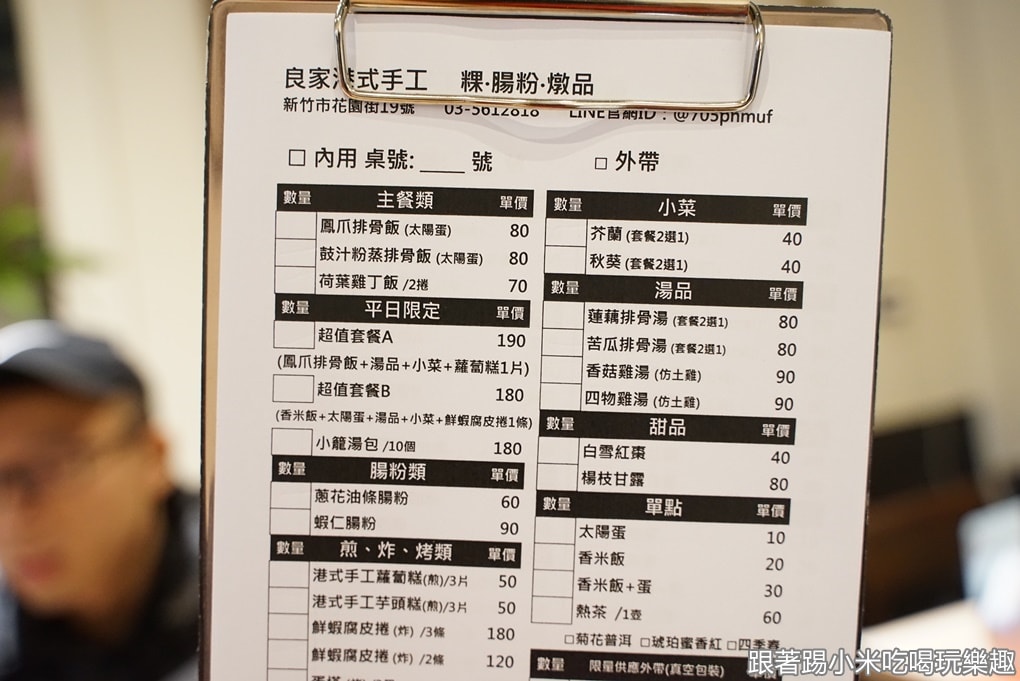 良家港式手工 粿·腸粉·燉品
新竹市花園街19號 03-5612818 LINE官網ID：@705phmuf
□ 內用 桌號:____ 號 □ 外帶
數量 主餐類 單價
鳳爪排骨飯 (太陽蛋) 80
鼓汁粉蒸排骨飯 (太陽蛋) 80
荷葉雞丁飯 /2捲 70
數量 平日限定 單價
超值套餐A 190
(鳳爪排骨飯+湯品+小菜+蘿蔔糕1片)
超值套餐B 180
(香米飯+太陽蛋+湯品+小菜+鮮蝦腐皮捲1條)
小籠湯包 /10個 180
數量 腸粉類 單價
蔥花油條腸粉 60
蝦仁腸粉 90
數量 煎、炸、烤類 單價
港式手工蘿蔔糕(煎)/3片 50
港式手工芋頭糕(煎)/3片 50
鮮蝦腐皮捲 (炸) /3條 180
鮮蝦腐皮捲 (炸) /2條 120
數量 小菜 單價
芥蘭 (套餐2選1) 40
秋葵 (套餐2選1) 40
數量 湯品 單價
蓮藕排骨湯 (套餐2選1) 80
苦瓜排骨湯 (套餐2選1) 80
香菇雞湯 (仿土雞) 90
四物雞湯 (仿土雞) 90
數量 甜品 單價
白雪紅棗 40
楊枝甘露 80
數量 單點 單價
太陽蛋 10
香米飯 20
香米飯+蛋 30
熱茶 /1壺 60
□菊花普洱 □琥珀蜜香紅 □四季春
數量 限量供應外帶(真空包裝)
跟著踢小米吃喝玩樂趣